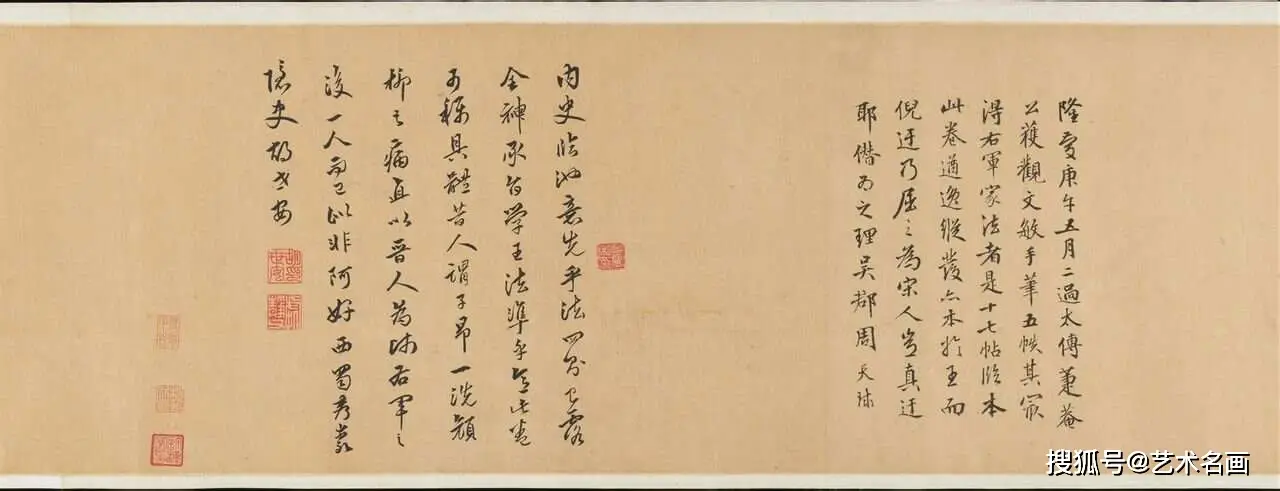 隆慶庚午五月二過太傅蕭菴
公獲觀文敏手筆五帙其最
得右軍家法者是十七帖臨本
此卷遒逸縱發亦本於王而
倪迂乃屈之為宋人豈真迂
耶僭為之理吳郡周天球
內史臨池意先乎法四已露
全神承旨學王法準乎意此卷
可稱具體昔人謂子昂一洗顏
柳之病直以晉人為師右軍之
後一人而已此非阿好西蜀秀巖
隱史胡世安
搜狐号@艺术名画